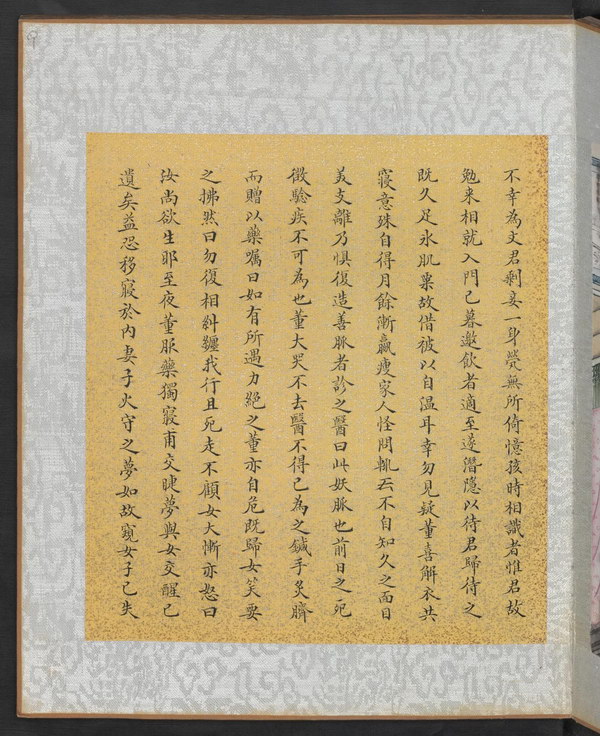 不幸為文君剩妾一身煢無所倚憶孩時相識者惟君故
勉来相就入門已暮邀飲者適至遂潛隱以待君歸待之
既久足氷肌粟故借被以自温耳幸勿見疑董喜解衣共
寢意殊自得月餘漸羸瘦家人怪問輒云不自知久之面目
益支離乃懼復造善脈者診之醫曰此妖脈也前日之死
徵驗疾不可為也董大哭不去醫不得已為之鍼手灸臍
而贈以藥嘱曰如有所遇力絕之董亦自危既歸女笑要
之拂然曰勿復相糾纏我行且死走不顧女大慚亦怒曰
汝尚欲生耶至夜董服藥獨寢甫交睫夢與女交醒已
遺矣益恐移寢於内妻子火守之夢如故窺女子已失